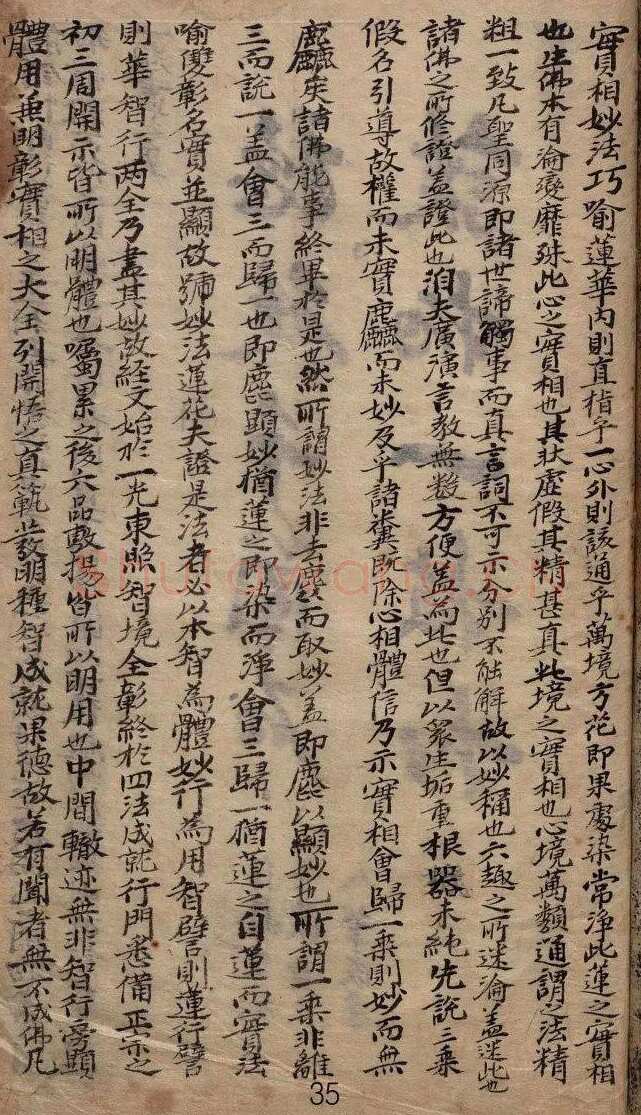 實相妙法巧喻蓮華內則直指乎一心外則該通乎萬境方花即果處染常淨此蓮之實相
也生佛本有淪變靡殊此心之實相也其狀虛假其精甚真此境之實相也心境萬類通謂之法精
粗一致凡聖同源即諸世諦觸事而真言詞不可示分別不能解故以妙稱也六趣之所迷淪盖迷此也
諸佛之所修證盖證此也洎夫廣演言教無數方便盖為此也但以衆生垢重根器未純先說三乘
假名引導故權而未實麁而未妙及乎諸糞既除心相體信乃示實相會歸一乘則妙而無
麁矣諸佛能事終畢於是也然所謂妙法非去麁而取妙盖即麁以顯妙也所謂一乘非離
三而說一盖會三而歸一也即麁顯妙猶蓮之即染而淨會三歸一猶蓮之自蓮而實法
喻雙彰名實並顯故號妙法蓮花夫證是法者必以本智為體妙行為用智譬則蓮行譬
則華智行两全乃盡其妙故經文始於一光東照智境全彰終於四法成就行門悉備正宗之
初三周開示皆所以明體也囑累之後六品敷揚皆所以明用也中間轍迹無非智行旁顯
體用兼明彰實相之大全列開悟之真範發明種智成就果德故若有聞者無不成佛凡
35